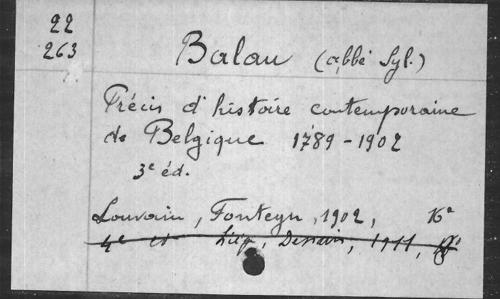 22
263
Balau (abbé Syl.)
Précis d'histoire contemporaine
de Belgique 1789-1902
3e éd.
Louvain, Fonteyn, 1902, 16°
4e éd. Liége, Dessain, 1911,